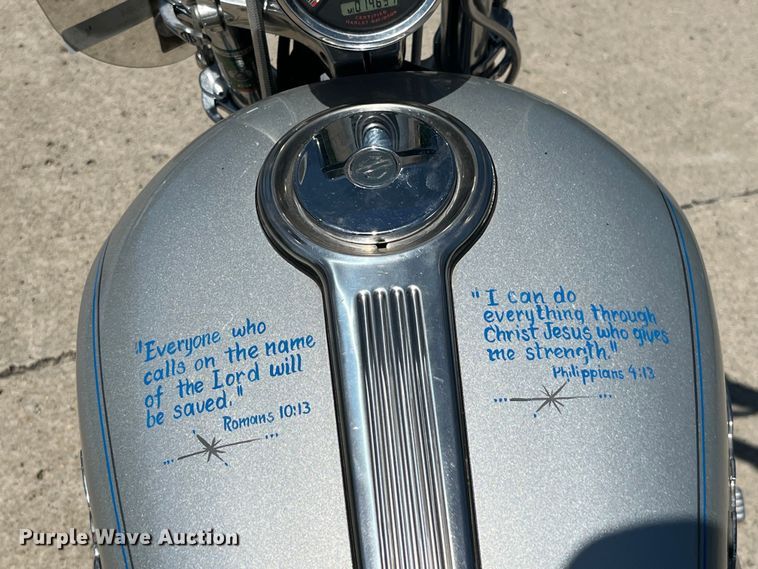 CERTIFIED
HARLEY-DAVIDSON
"Everyone who
calls on the name
of the Lord will
be saved."
Romans 10:13
"I can do
everything through
Christ Jesus who gives
me strength."
Philippians 4:13
Purple Wave Auction